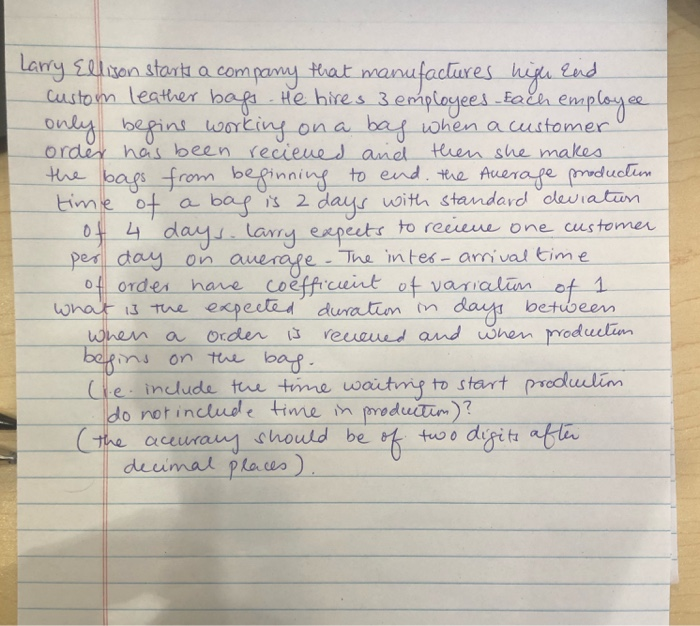 Larry Ellison starts a company that manufactures high End
custom leather bags. He hires 3 employees. Each employee
only begins working on a bag when a customer
order has been recieued and then she makes
the bags from beginning to end. the Average production
time of a bag is 2 days with standard deviation
of 4 days. larry expects to recieue one customer
per day on average. The inter-arrival time
of order have coefficient of variation of 1
what is the expected duration in days between
when a order is receued and when production
begins on the bag.
(i.e. include the time waiting to start production
do not include time in production)?
(the accuracy should be of two digits after
decimal places).